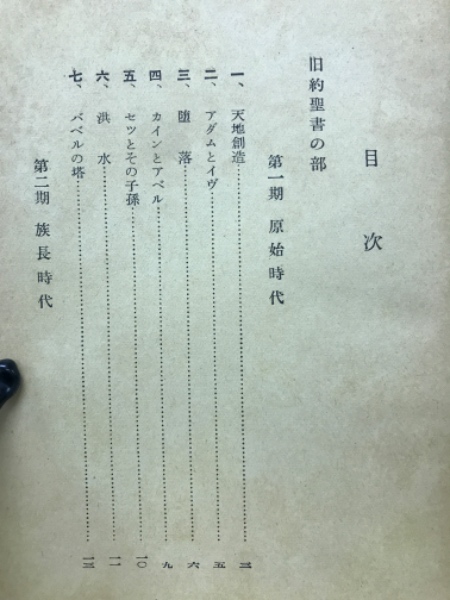 目次
旧約聖書の部
第一期 原始時代
一、天地創造……三
二、アダムとイヴ……五
三、堕落……六
四、カインとアベル……九
五、セツとその子孫……一〇
六、洪水……一一
七、バベルの塔……一三
第二期 族長時代